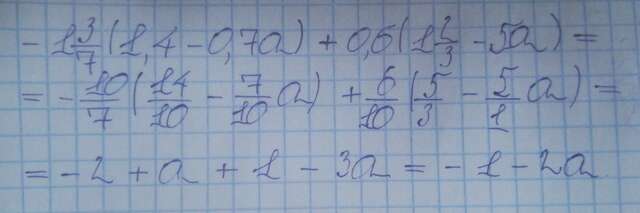 - 1 3/7 (1,4 - 0,7a) + 0,6 (1 2/3 - 5a) =
= - 10/7 (14/10 - 7/10 a) + 6/10 (5/3 - 5/1 a) =
= - 2 + a + 1 - 3a = - 1 - 2a